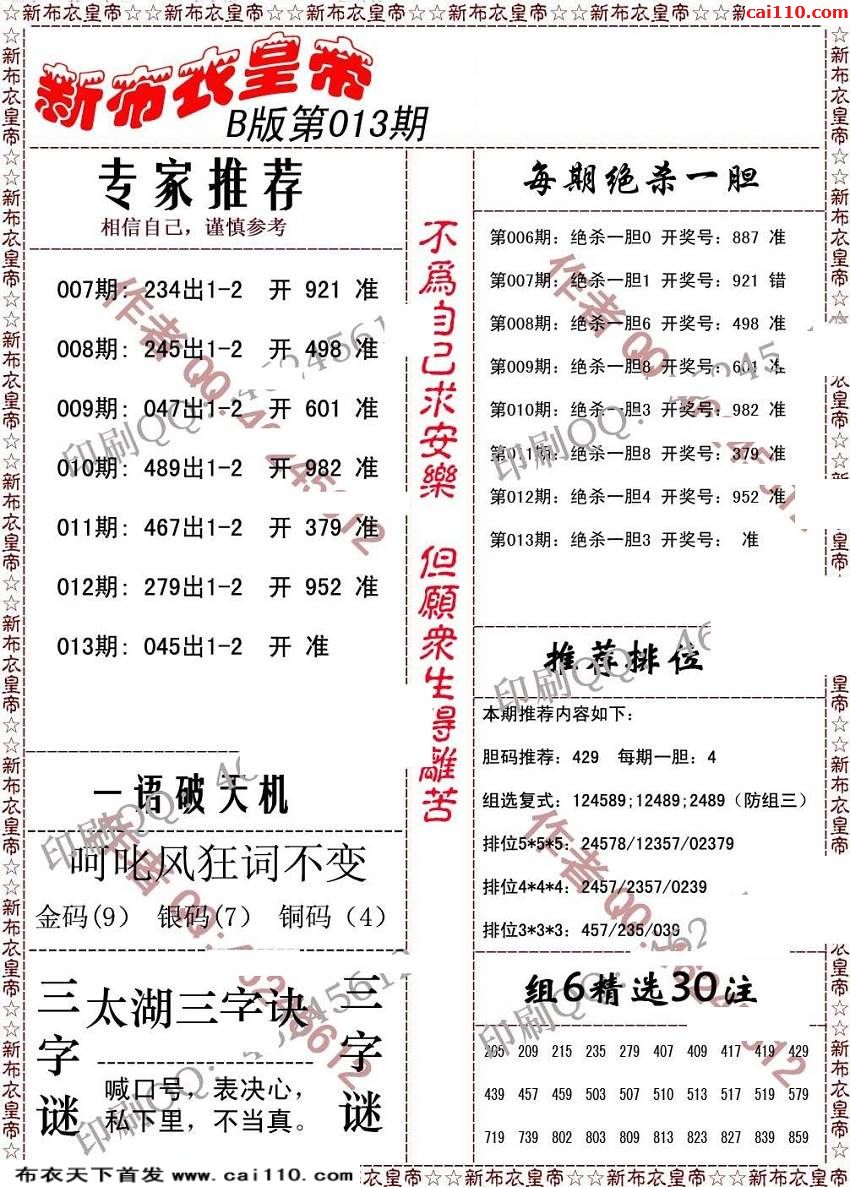 ☆☆新布衣皇帝☆☆新布衣皇帝☆☆新布衣皇帝☆☆新布衣皇帝☆☆新布衣皇帝☆☆
cai110.com
新布衣皇帝
B版第013期
专家推荐
相信自己，谨慎参考
007期: 234出1-2 开 921 准
008期: 245出1-2 开 498 准
009期: 047出1-2 开 601 准
010期: 489出1-2 开 982 准
011期: 467出1-2 开 379 准
012期: 279出1-2 开 952 准
013期: 045出1-2 开 准
不爲自己求安樂 但願衆生得離苦
每期绝杀一胆
第006期: 绝杀一胆0 开奖号: 887 准
第007期: 绝杀一胆1 开奖号: 921 错
第008期: 绝杀一胆6 开奖号: 498 准
第009期: 绝杀一胆8 开奖号: 601 准
第010期: 绝杀一胆3 开奖号: 982 准
第011期: 绝杀一胆8 开奖号: 379 准
第012期: 绝杀一胆4 开奖号: 952 准
第013期: 绝杀一胆3 开奖号: 准
推荐排位
本期推荐内容如下:
胆码推荐: 429 每期一胆: 4
组选复式: 124589;12489;2489（防组三）
排位5*5*5: 24578/12357/02379
排位4*4*4: 2457/2357/0239
排位3*3*3: 457/235/039
一语破天机
呵叱风狂词不变
金码(9) 银码(7) 铜码（4）
三字谜
太湖三字诀
喊口号，表决心，
私下里，不当真。
三字谜
组6精选30注
205 209 215 235 279 407 409 417 419 429
439 457 459 503 507 510 513 517 519 579
719 739 802 803 809 813 823 827 839 859
布衣天下首发 www.cai110.com
衣皇帝☆☆新布衣皇帝☆☆新布衣皇帝☆☆新布衣皇帝☆☆